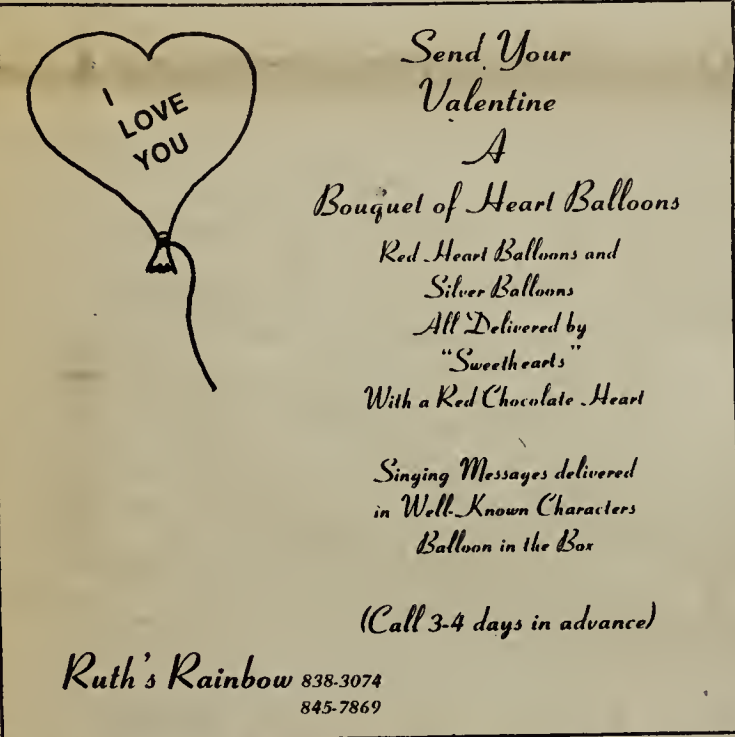 I
LOVE
YOU
Send Your
Valentine
A
Bouquet of Heart Balloons
Red Heart Balloons and
Silver Balloons
All Delivered by
"Sweethearts"
With a Red Chocolate Heart
Singing Messages delivered
in Well-Known Characters
Balloon in the Box
(Call 3-4 days in advance)
Ruth's Rainbow 838-3074
845-7869